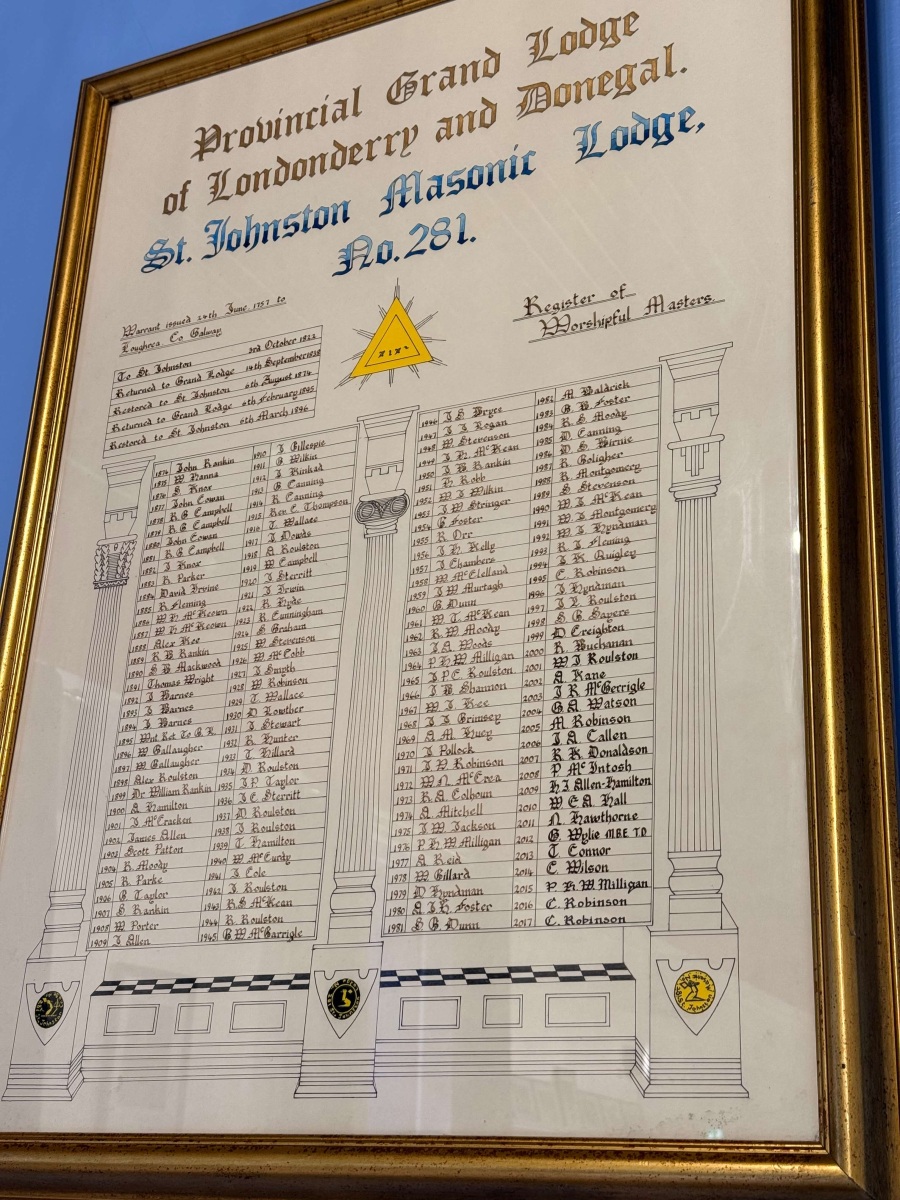 Provincial Grand Lodge
of Londonderry and Donegal.
St. Johnston Masonic Lodge,
No. 281.
Warrant issued 24th June 1757 to
Loughrea Co Galway
To St Johnston 3rd October 1822
Returned to Grand Lodge 14th September 1838
Restored to St Johnston 6th August 1874
Returned to Grand Lodge 6th February 1895
Restored to St Johnston 6th March 1896
Register of
Worshipful Masters.
1874 John Rankin
1875 W Hanna
1876 S Knox
1877 John Cowan
1878 R G Campbell
1879 R G Campbell
1880 John Cowan
1881 R G Campbell
1882 J Knox
1883 R Parker
1884 David Irvine
1885 R Fleming
1886 W H McKeown
1887 W H McKeown
1888 Alex Kee
1889 R B Rankin
1890 S B Mackwood
1891 Thomas Wright
1892 J Barnes
1893 J Barnes
1894 J Barnes
1895 Wnt Ret To G. L.
1896 W Gallaugher
1897 W Gallaugher
1898 Alex Roulston
1899 Dr William Rankin
1900 A Hamilton
1901 J McCracken
1902 James Allen
1903 Scott Patton
1904 R Moody
1905 R Parke
1906 G Taylor
1907 S Rankin
1908 W Porter
1909 J Allen
1910 J Gillespie
1911 G Wilkin
1912 J Kinkad
1913 G Canning
1914 R Canning
1915 Rev. C Thompson
1916 T Wallace
1917 J Dowds
1918 A Roulston
1919 W Campbell
1920 J Sterritt
1921 J Irwin
1922 R Hyde
1923 R Cunningham
1924 S Graham
1925 W Stevenson
1926 W McCobb
1927 J Smyth
1928 W Robinson
1929 T Wallace
1930 D Lowther
1931 J Stewart
1932 R Hunter
1933 T Hillard
1934 D Roulston
1935 J P Taylor
1936 J E Sterritt
1937 D Roulston
1938 J Roulston
1939 T Hamilton
1940 W McCurdy
1941 J Cole
1942 J Roulston
1943 R S McKean
1944 R Roulston
1945 G W McGarrigle
1946 J S Bryce
1947 J J Logan
1948 W Stevenson
1949 J H McKean
1950 J B Rankin
1951 H Robb
1952 W J Wilkin
1953 J W Stringer
1954 G Foster
1955 R Orr
1956 J H Kelly
1957 J Chambers
1958 W McClelland
1959 J W Murtagh
1960 G Dunn
1961 W T McKean
1962 R W Moody
1963 J A Woods
1964 P H W Milligan
1965 J P C Roulston
1966 J B Shannon
1967 W J Kee
1968 J J Grimsey
1969 A M Huey
1970 J Pollock
1971 J W Robinson
1972 W N McCrea
1973 R A Colhoun
1974 A Mitchell
1975 J W Jackson
1976 P H W Milligan
1977 A Reid
1978 W Gillard
1979 D Hyndman
1980 A J H Foster
1981 S G Dunn
1982 M Baldrick
1983 G B Foster
1984 R S Moody
1985 D Canning
1986 D S Birnie
1987 R Goligher
1988 R Montgomery
1989 S Stevenson
1990 W J McKean
1991 W J Montgomery
1992 W J Hyndman
1993 R J Fleming
1994 J K Quigley
1995 C Robinson
1996 J Hyndman
1997 J Y Roulston
1998 S G Sayers
1999 D Creighton
2000 R Buchanan
2001 W J Roulston
2002 A Kane
2003 J R McGerrigle
2004 G A Watson
2005 M Robinson
2006 J A Callen
2007 R K Donaldson
2008 P McIntosh
2009 H J Allen-Hamilton
2010 W E A Hall
2011 N Hawthorne
2012 G Wylie MBE TD
2013 T Connor
2014 C Wilson
2015 P H W Milligan
2016 C. Robinson
2017 C. Robinson